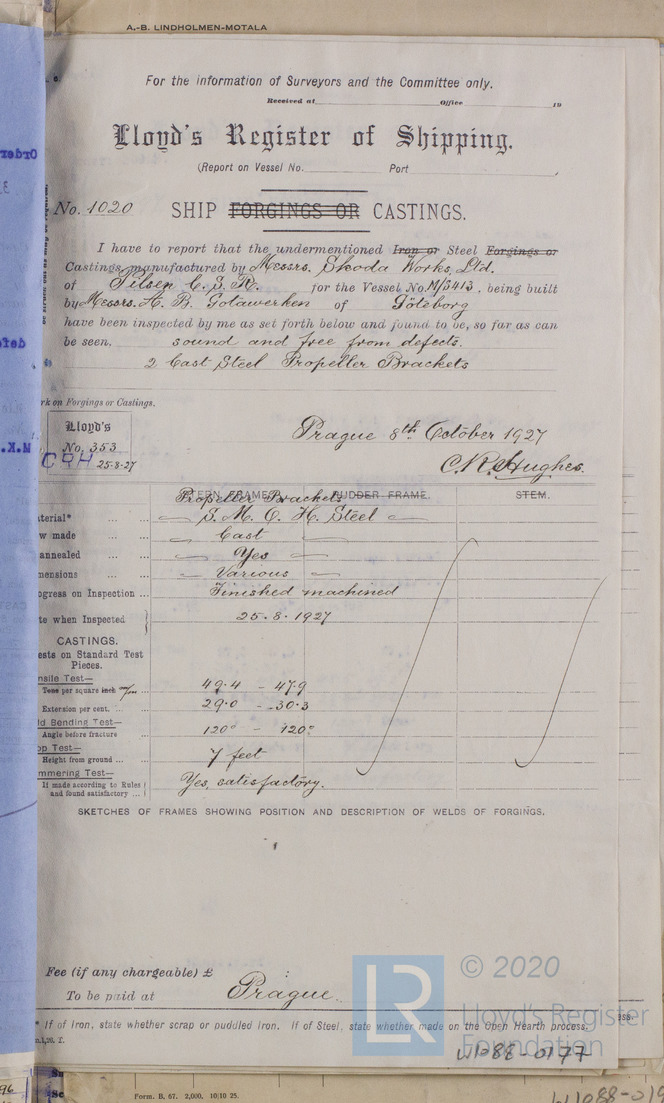 A.-B. LINDHOLMEN-MOTALA
For the information of Surveyors and the Committee only.
Received at Office 19
Lloyd's Register of Shipping.
(Report on Vessel No. Port
No. 1020 SHIP FORGINGS OR CASTINGS.
I have to report that the undermentioned Iron or Steel Forgings or
Castings manufactured by Messrs. Skoda Works, Ltd.
of Pilsen C. S. R. for the Vessel No. M/3413, being built
by Messrs. A. B. Gotawerken of Göteborg
have been inspected by me as set forth below and found to be, so far as can
be seen, sound and free from defects.
2 Cast Steel Propeller Brackets
rk on Forgings or Castings.
Lloyd's
No. 353
CRH 25-8-27
Prague 8th October 1927
C.R. Hughes.
Propeller Brackets
STERN FRAME. RUDDER FRAME. STEM.
aterial* S. M. O. H. Steel
w made Cast
annealed Yes
mensions Various
ogress on Inspection Finished machined
te when Inspected 25.8.1927
CASTINGS.
ests on Standard Test
Pieces.
nsile Test—
Tons per square inch 49.4 - 47.9
Extension per cent. 29.0 - 30.3
ld Bending Test—
Angle before fracture 120° - 120°
op Test—
Height from ground 7 feet
mmering Test—
If made according to Rules Yes, satisfactory.
and found satisfactory
SKETCHES OF FRAMES SHOWING POSITION AND DESCRIPTION OF WELDS OF FORGINGS.
Fee (if any chargeable) £
To be paid at Prague.
* If of Iron, state whether scrap or puddled iron. If of Steel, state whether made on the Open Hearth process.
LR © 2020
Lloyd's Register
Foundation
W1088-0177
Form. B, 67. 2,000. 10:10 25.